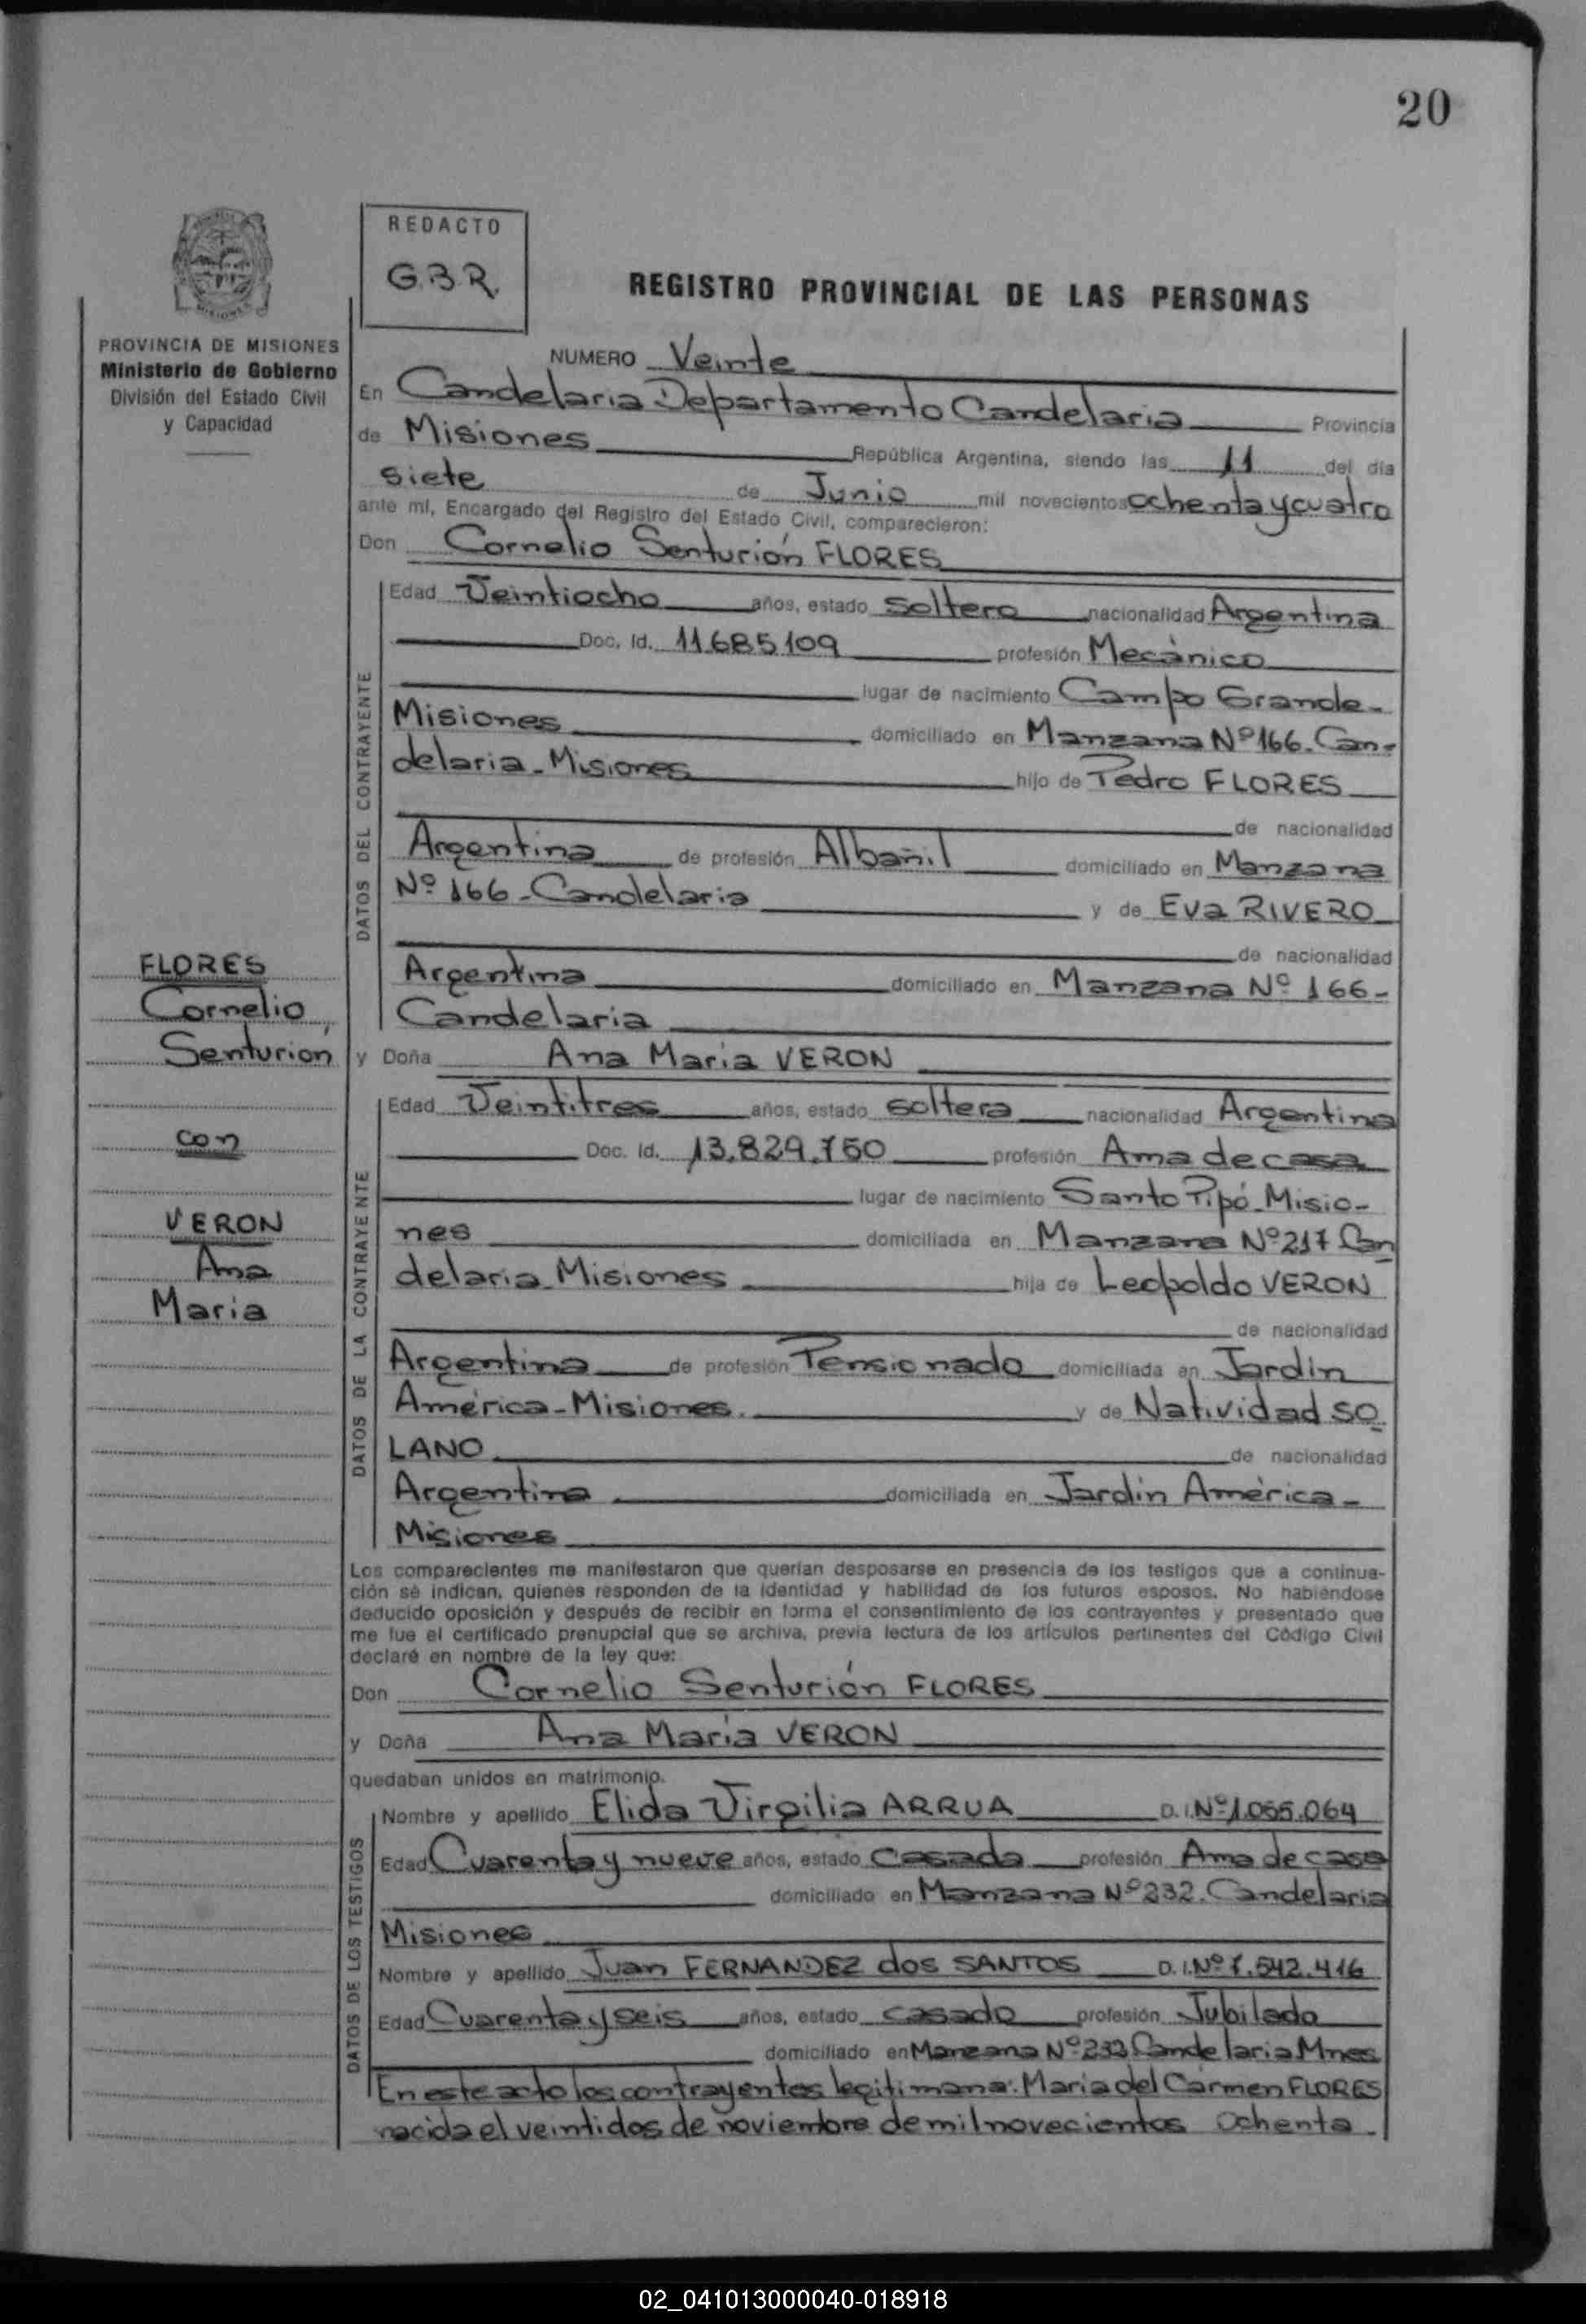 20
REDACTO
G.B.R.
REGISTRO PROVINCIAL DE LAS PERSONAS
PROVINCIA DE MISIONES
Ministerio de Gobierno
División del Estado Civil
y Capacidad
NUMERO Veinte
En Candelaria Departamento Candelaria Provincia
de Misiones República Argentina, siendo las 11 del día
siete de Junio mil novecientos ochenta y cuatro
ante mí, Encargado del Registro del Estado Civil, comparecieron:
Don Cornelio Senturión FLORES
DATOS DEL CONTRAYENTE
Edad Veintiocho años, estado soltero nacionalidad Argentina
Doc. Id. 11.685.109 profesión Mecánico
lugar de nacimiento Campo Grande-
Misiones domiciliado en Manzana Nº166-Can-
delaria-Misiones hijo de Pedro FLORES
de nacionalidad
Argentina de profesión Albañil domiciliado en Manzana
Nº 166-Candelaria y de Eva RIVERO
de nacionalidad
Argentina domiciliado en Manzana Nº 166-
Candelaria
FLORES
Cornelio
Senturión
con
VERON
Ana
Maria
y Doña Ana Maria VERON
DATOS DE LA CONTRAYENTE
Edad Veintitres años, estado soltera nacionalidad Argentina
Doc. Id. 13.829.750 profesión Ama de casa
lugar de nacimiento Santo Pipó-Misio-
nes domiciliada en Manzana Nº217 Can
delaria Misiones hija de Leopoldo VERON
de nacionalidad
Argentina de profesión Pensionado domiciliada en Jardin
América-Misiones. y de Natividad SO
LANO de nacionalidad
Argentina domiciliada en Jardin América-
Misiones
Los comparecientes me manifestaron que querían desposarse en presencia de los testigos que a continua-
ción se indican, quienes responden de la identidad y habilidad de los futuros esposos. No habiéndose
deducido oposición y después de recibir en forma el consentimiento de los contrayentes y presentado que
me fue el certificado prenupcial que se archiva, previa lectura de los artículos pertinentes del Código Civil
declaré en nombre de la ley que:
Don Cornelio Senturión FLORES
y Doña Ana Maria VERON
quedaban unidos en matrimonio.
DATOS DE LOS TESTIGOS
Nombre y apellido Elida Virgilia ARRUA D.I.Nº1.055.064
Edad Cuarenta y nueve años, estado Casada profesión Ama de casa
domiciliado en Manzana Nº232.Candelaria
Misiones
Nombre y apellido Juan FERNANDEZ dos SANTOS D.I.Nº7.542.416
Edad Cuarenta y seis años, estado casado profesión Jubilado
domiciliado en Manzana Nº232 Candelaria Mnes
En este acto los contrayentes legitiman a: Maria del Carmen FLORES
nacida el veintidos de noviembre de mil novecientos ochenta.
02_041013000040-018918